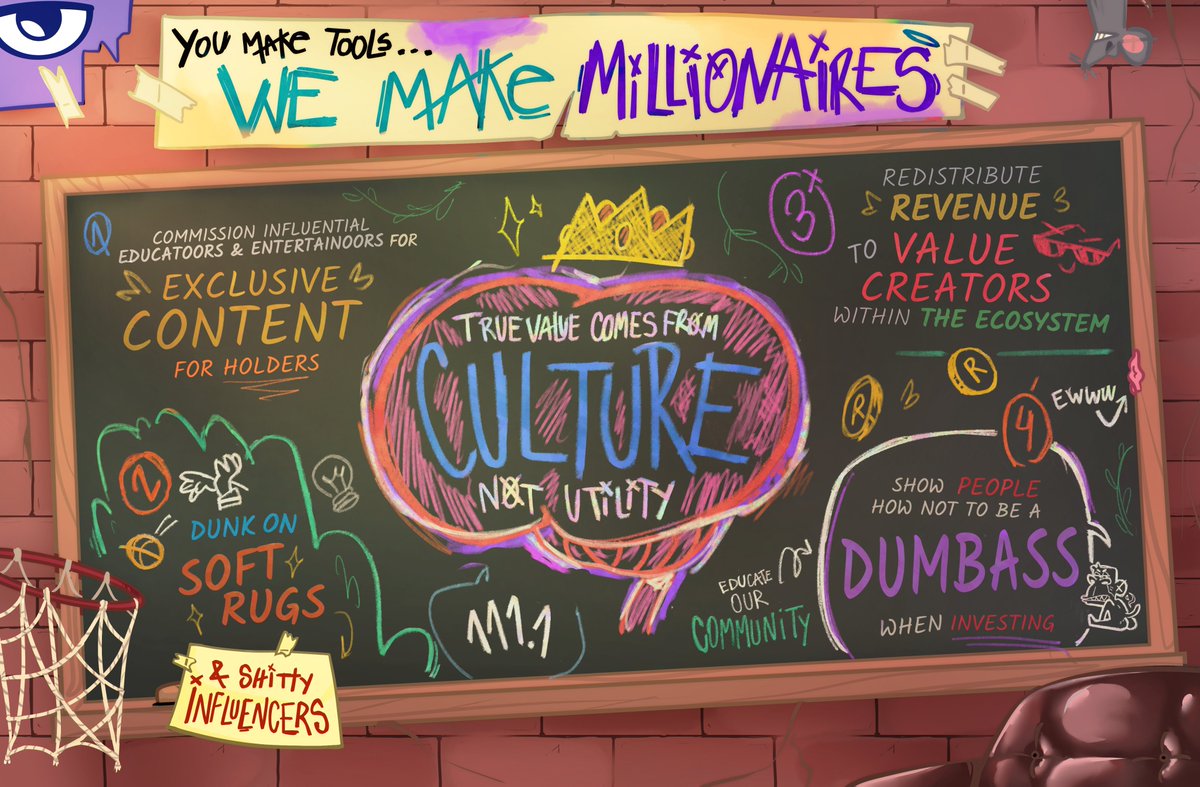 YOU MAKE TOOLS...
WE MAKE MILLIONAIRES
1
COMMISSION INFLUENTIAL
EDUCATOORS & ENTERTAINOORS FOR
EXCLUSIVE
CONTENT
FOR HOLDERS
2
DUNK ON
SOFT
RUGS
& SHITTY
INFLUENCERS
TRUE VALUE COMES FROM
CULTURE
NOT UTILITY
3
REDISTRIBUTE
REVENUE
TO VALUE
CREATORS
WITHIN THE ECOSYSTEM
R
R
EWWW
4
SHOW PEOPLE
HOW NOT TO BE A
DUMBASS
WHEN INVESTING
EDUCATE
OUR
COMMUNITY